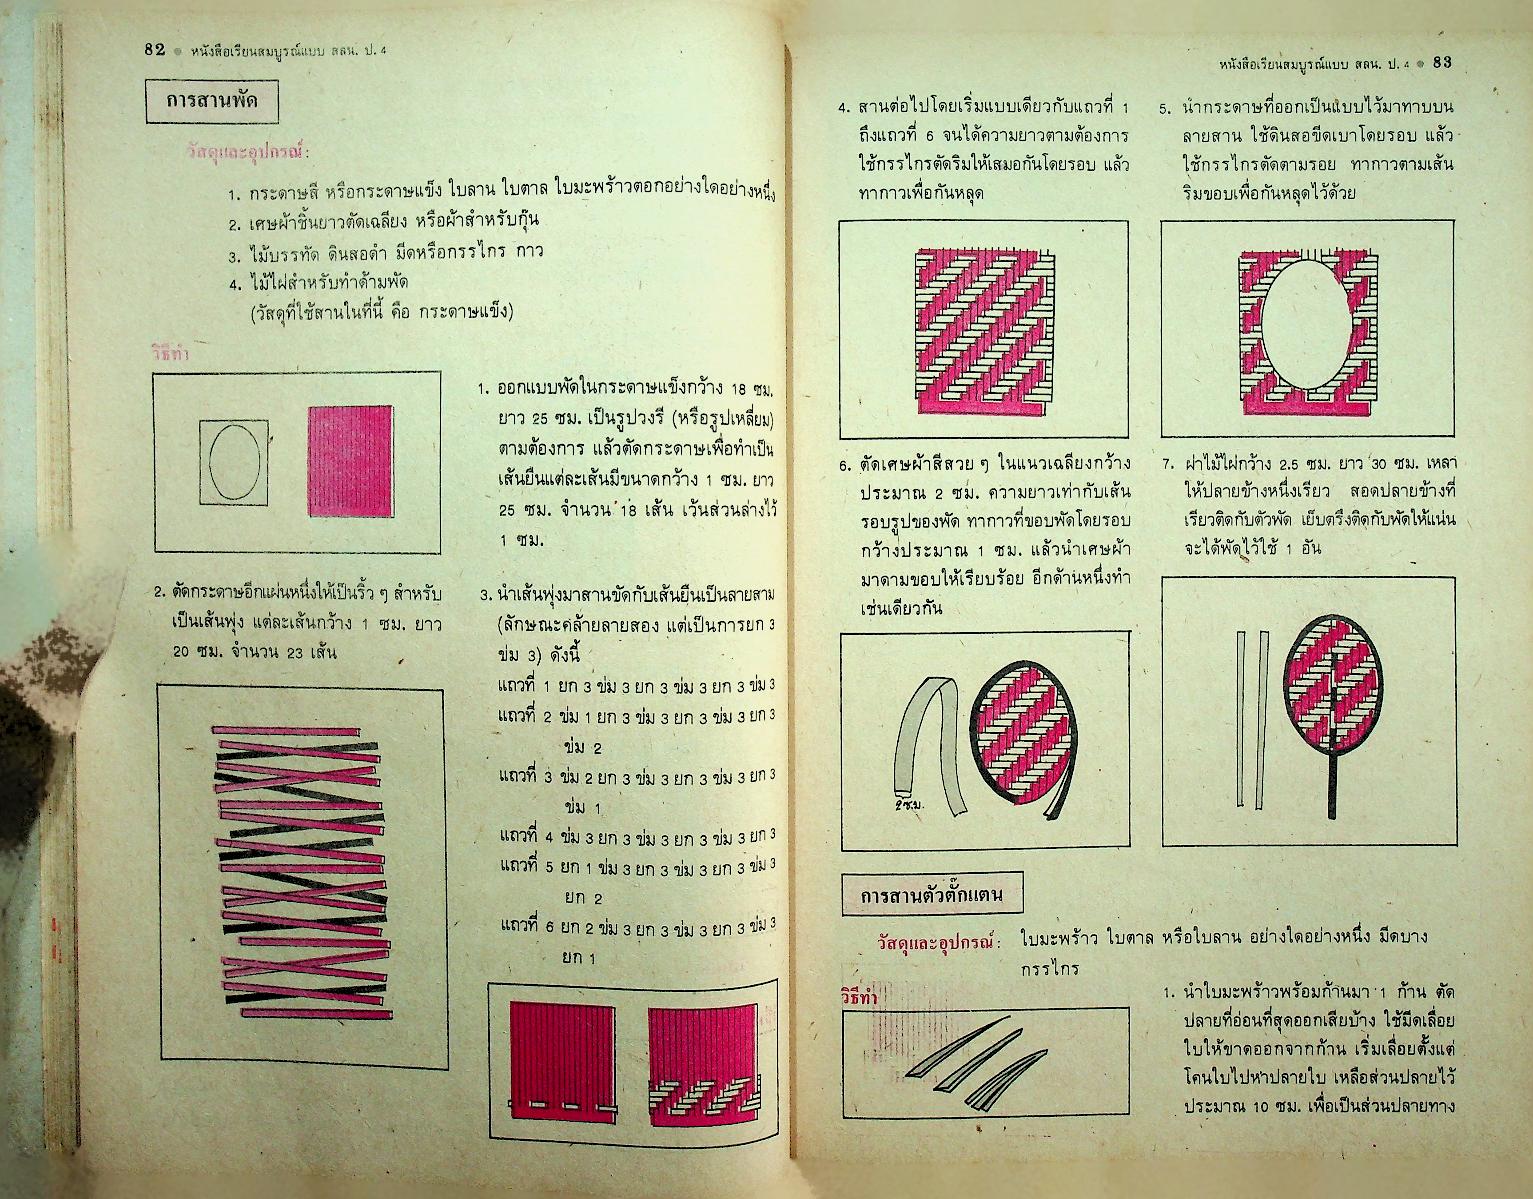 82 ● หนังสือเรียนสมบูรณ์แบบ สลน. ป. 4
การสานพัด
วัสดุและอุปกรณ์:
1. กระดาษสี หรือกระดาษแข็ง ใบลาน ใบตาล ใบมะพร้าวตอกอย่างใดอย่างหนึ่ง
2. เศษผ้าชิ้นยาวตัดเฉลียง หรือผ้าสำหรับกุ๊น
3. ไม้บรรทัด ดินสอดำ มีดหรือกรรไกร กาว
4. ไม้ไผ่สำหรับทำด้ามพัด
(วัสดุที่ใช้สานในที่นี้ คือ กระดาษแข็ง)
วิธีทำ
1. ออกแบบพัดในกระดาษแข็งกว้าง 18 ซม.
ยาว 25 ซม. เป็นรูปวงรี (หรือรูปเหลี่ยม)
ตามต้องการ แล้วตัดกระดาษเพื่อทำเป็น
เส้นยืนแต่ละเส้นมีขนาดกว้าง 1 ซม. ยาว
25 ซม. จำนวน 18 เส้น เว้นส่วนล่างไว้
1 ซม.
2. ตัดกระดาษอีกแผ่นหนึ่งให้เป็นริ้ว ๆ สำหรับ
เป็นเส้นพุ่ง แต่ละเส้นกว้าง 1 ซม. ยาว
20 ซม. จำนวน 23 เส้น
3. นำเส้นพุ่งมาสานขัดกับเส้นยืนเป็นลายสาม
(ลักษณะคล้ายลายสอง แต่เป็นการยก 3
ข่ม 3) ดังนี้
แถวที่ 1 ยก 3 ข่ม 3 ยก 3 ข่ม 3 ยก 3 ข่ม 3
แถวที่ 2 ข่ม 1 ยก 3 ข่ม 3 ยก 3 ข่ม 3 ยก 3
ข่ม 2
แถวที่ 3 ข่ม 2 ยก 3 ข่ม 3 ยก 3 ข่ม 3 ยก 3
ข่ม 1
แถวที่ 4 ข่ม 3 ยก 3 ข่ม 3 ยก 3 ข่ม 3 ยก 3
แถวที่ 5 ยก 1 ข่ม 3 ยก 3 ข่ม 3 ยก 3 ข่ม 3
ยก 2
แถวที่ 6 ยก 2 ข่ม 3 ยก 3 ข่ม 3 ยก 3 ข่ม 3
ยก 1
หนังสือเรียนสมบูรณ์แบบ สลน. ป. 4 ● 83
4. สานต่อไปโดยเริ่มแบบเดียวกับแถวที่ 1
ถึงแถวที่ 6 จนได้ความยาวตามต้องการ
ใช้กรรไกรตัดริมให้เสมอกันโดยรอบ แล้ว
ทากาวเพื่อกันหลุด
5. นำกระดาษที่ออกเป็นแบบไว้มาทาบบน
ลายสาน ใช้ดินสอขีดเบาโดยรอบ แล้ว
ใช้กรรไกรตัดตามรอย ทากาวตามเส้น
ริมขอบเพื่อกันหลุดไว้ด้วย
6. ตัดเศษผ้าสีสวย ๆ ในแนวเฉลียงกว้าง
ประมาณ 2 ซม. ความยาวเท่ากับเส้น
รอบรูปของพัด ทากาวที่ขอบพัดโดยรอบ
กว้างประมาณ 1 ซม. แล้วนำเศษผ้า
มาดามขอบให้เรียบร้อย อีกด้านหนึ่งทำ
เช่นเดียวกัน
2 ซ.ม.
7. ฝาไม้ไผ่กว้าง 2.5 ซม. ยาว 30 ซม. เหลา
ให้ปลายข้างหนึ่งเรียว สอดปลายข้างที่
เรียวติดกับตัวพัด เย็บตรึงติดกับพัดให้แน่น
จะได้พัดไว้ใช้ 1 อัน
การสานตัวตั๊กแตน
วัสดุและอุปกรณ์: ใบมะพร้าว ใบตาล หรือใบลาน อย่างใดอย่างหนึ่ง มีดบาง
กรรไกร
วิธีทำ
1. นำใบมะพร้าวพร้อมก้านมา 1 ก้าน ตัด
ปลายที่อ่อนที่สุดออกเสียบ้าง ใช้มีดเลื่อย
ใบให้ขาดออกจากก้าน เริ่มเลื่อยตั้งแต่
โคนใบไปหาปลายใบ เหลือส่วนปลายไว้
ประมาณ 10 ซม. เพื่อเป็นส่วนปลายทาง